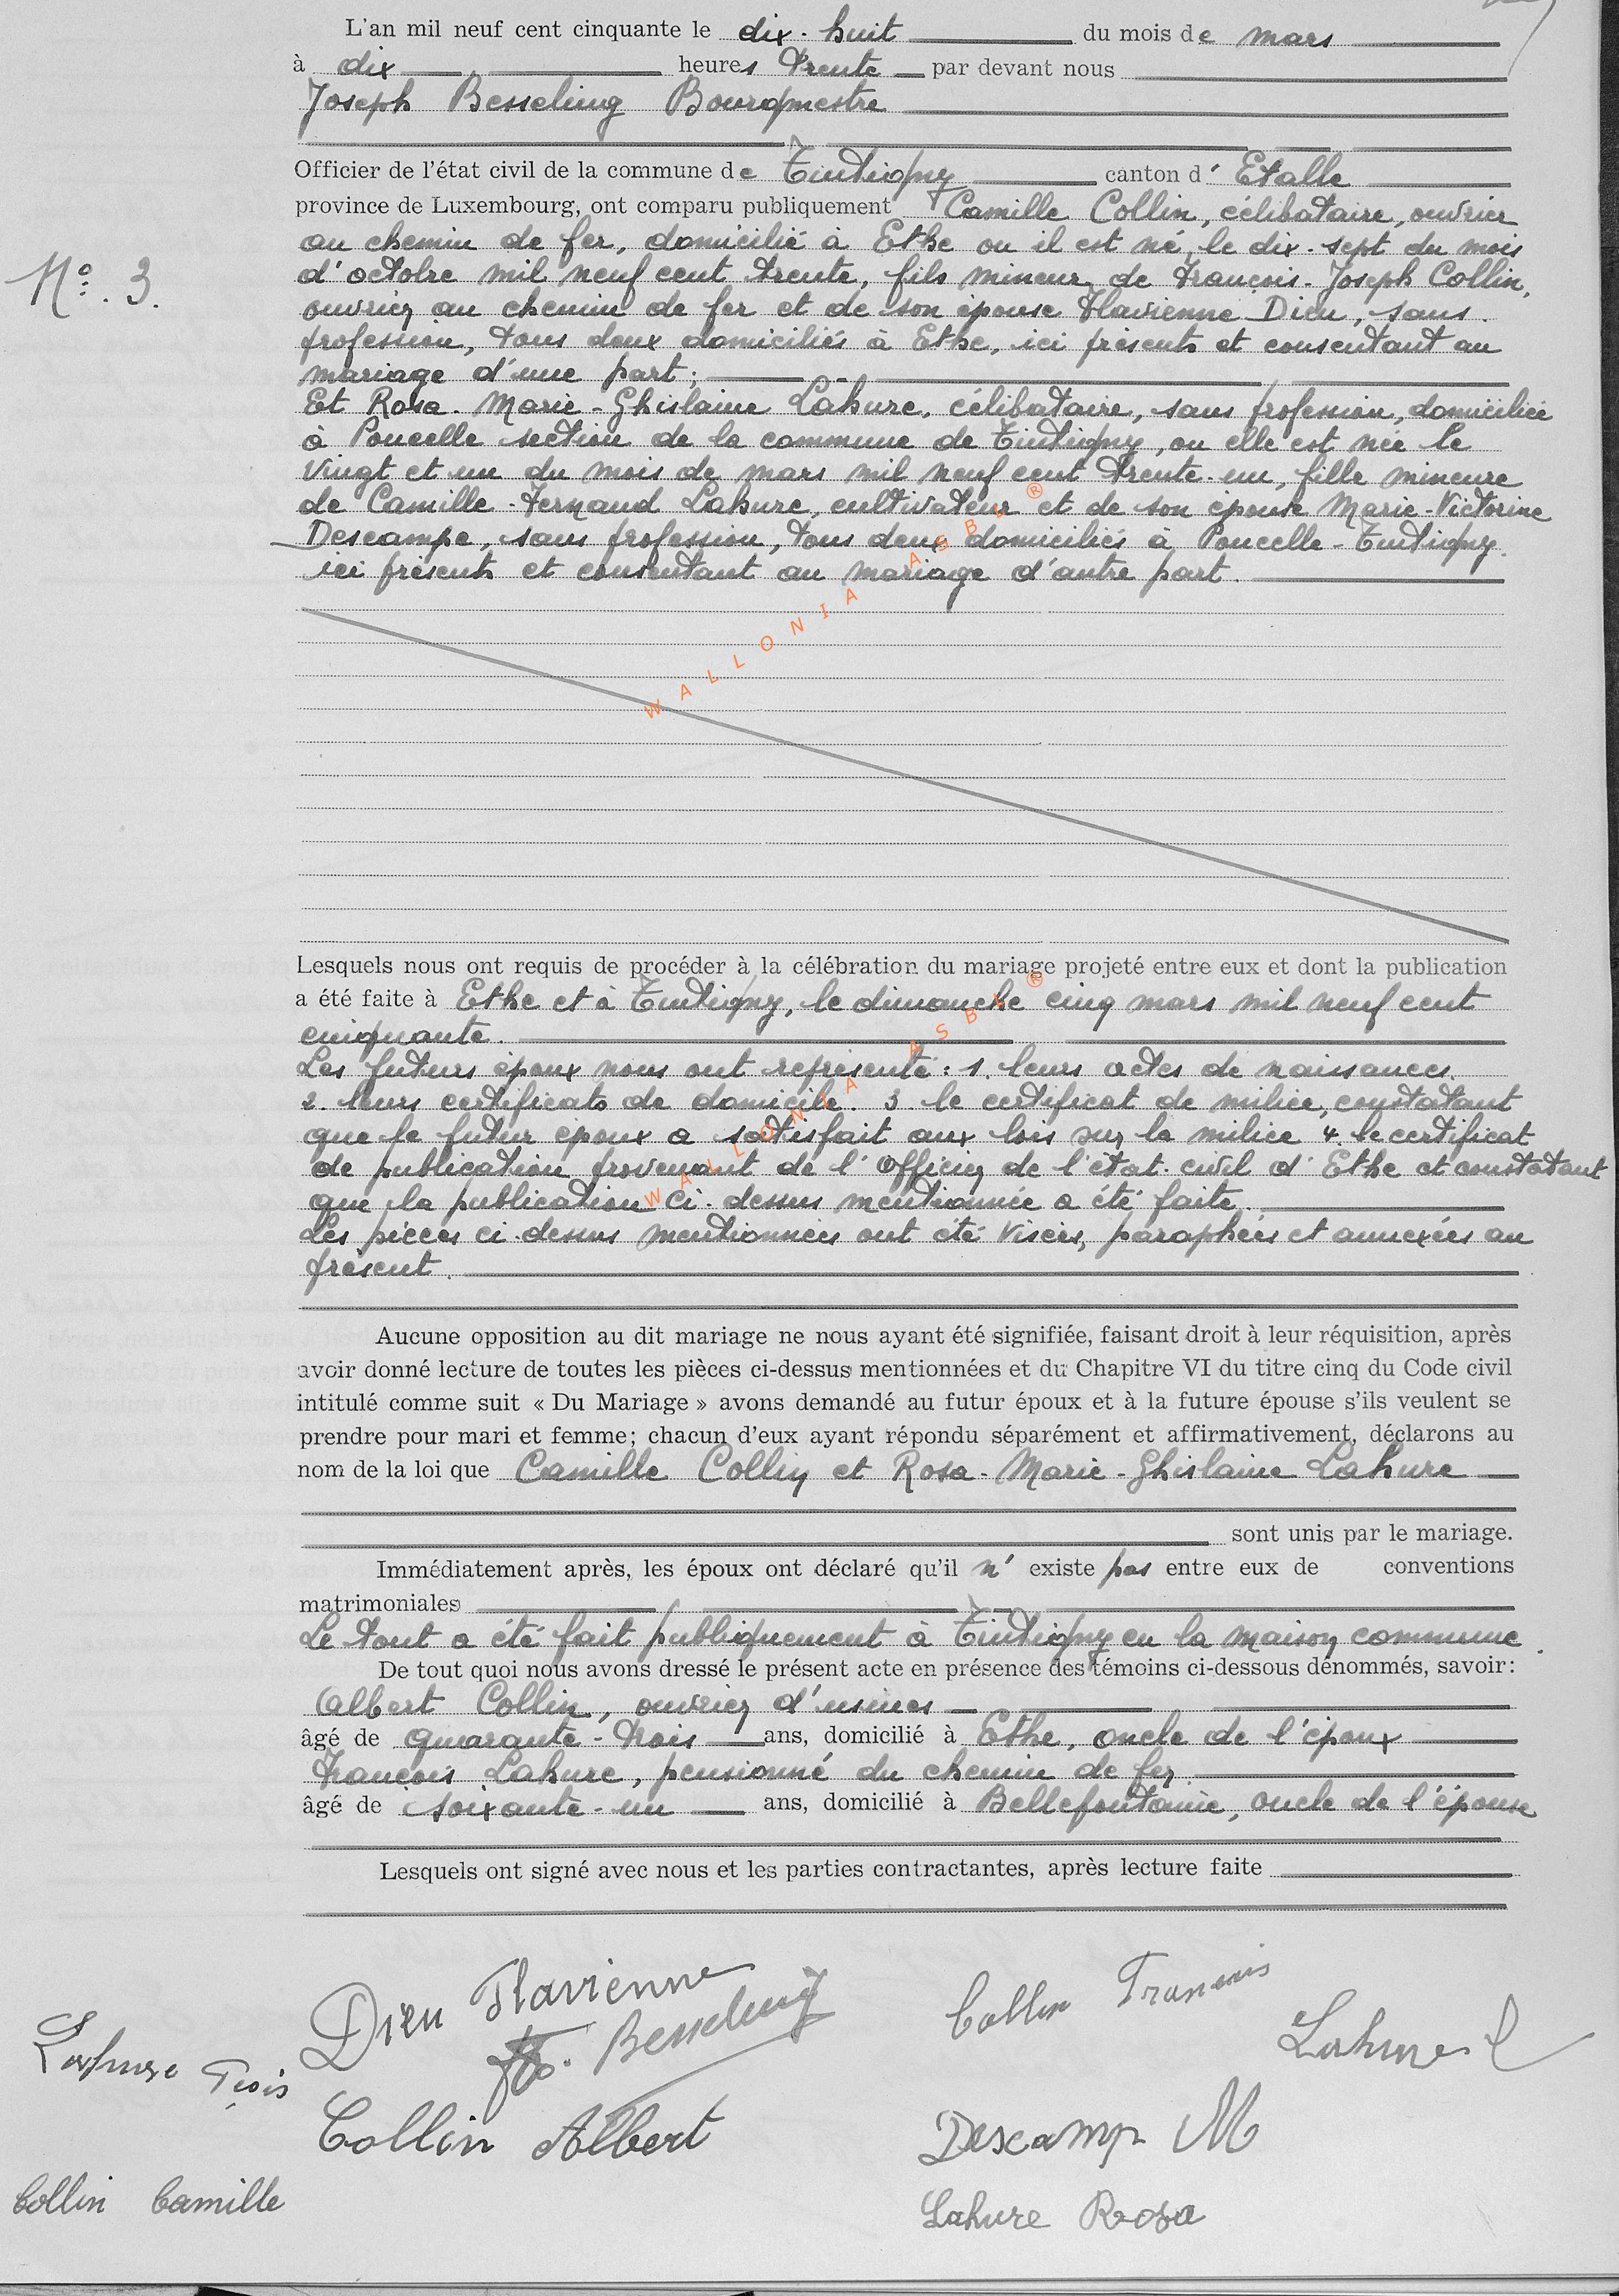 L'an mil neuf cent cinquante le dix-huit du mois de mars
à dix heures trente par devant nous
Joseph Besseling Bourgmestre
Officier de l'état civil de la commune de Tintigny canton d' Etalle
province de Luxembourg, ont comparu publiquement Camille Collin, célibataire, ouvrier
au chemin de fer, domicilié à Ethe ou il est né, le dix-sept du mois
d'octobre mil neuf cent trente, fils mineur de François-Joseph Collin,
ouvrier au chemin de fer et de son épouse Flavienne Dieu, sans
profession, tous deux domiciliés à Ethe, ici présents et consentant au
mariage d'une part;
N° 3.
Et Rosa-Marie-Ghislaine Lahure, célibataire, sans profession, domiciliée
à Poncelle section de la commune de Tintigny, ou elle est née le
vingt et un du mois de mars mil neuf cent trente-un, fille mineure
de Camille-Fernand Lahure, cultivateur et de son épouse Marie-Victorine
Descampe, sans profession, tous deux domiciliés à Poncelle-Tintigny
ici présents et consentant au mariage d'autre part.
WALLONIA ASBL ®
Lesquels nous ont requis de procéder à la célébration du mariage projeté entre eux et dont la publication
a été faite à Ethe et à Tintigny, le dimanche cinq mars mil neuf cent
cinquante.
Les futurs époux nous ont représenté: 1. leurs actes de naissances.
2. leurs certificats de domicile. 3. le certificat de milice, constatant
que le futur époux a satisfait aux lois sur la milice 4. le certificat
de publication provenant de l'Officier de l'état-civil d'Ethe et constatant
que la publication ci-dessus mentionnée a été faite.
Les pièces ci-dessus mentionnées ont été visées, paraphées et annexées au
présent.
WALLONIA ASBL ®
Aucune opposition au dit mariage ne nous ayant été signifiée, faisant droit à leur réquisition, après
avoir donné lecture de toutes les pièces ci-dessus mentionnées et du Chapitre VI du titre cinq du Code civil
intitulé comme suit « Du Mariage » avons demandé au futur époux et à la future épouse s'ils veulent se
prendre pour mari et femme; chacun d'eux ayant répondu séparément et affirmativement, déclarons au
nom de la loi que Camille Collin et Rosa-Marie-Ghislaine Lahure
sont unis par le mariage.
Immédiatement après, les époux ont déclaré qu'il n' existe pas entre eux de conventions
matrimoniales
Le tout a été fait publiquement à Tintigny en la maison commune.
De tout quoi nous avons dressé le présent acte en présence des témoins ci-dessous dénommés, savoir:
Albert Collin, ouvrier d'usines
âgé de quarante-trois ans, domicilié à Ethe, oncle de l'époux
François Lahure, pensionné du chemin de fer
âgé de soixante-un ans, domicilié à Bellefontaine, oncle de l'épouse
Lesquels ont signé avec nous et les parties contractantes, après lecture faite
Dieu Flavienne
Collin François
Besseling
Lahure C
Lahure Fçois
Collin Albert
Descamp M
Collin Camille
Lahure Rosa